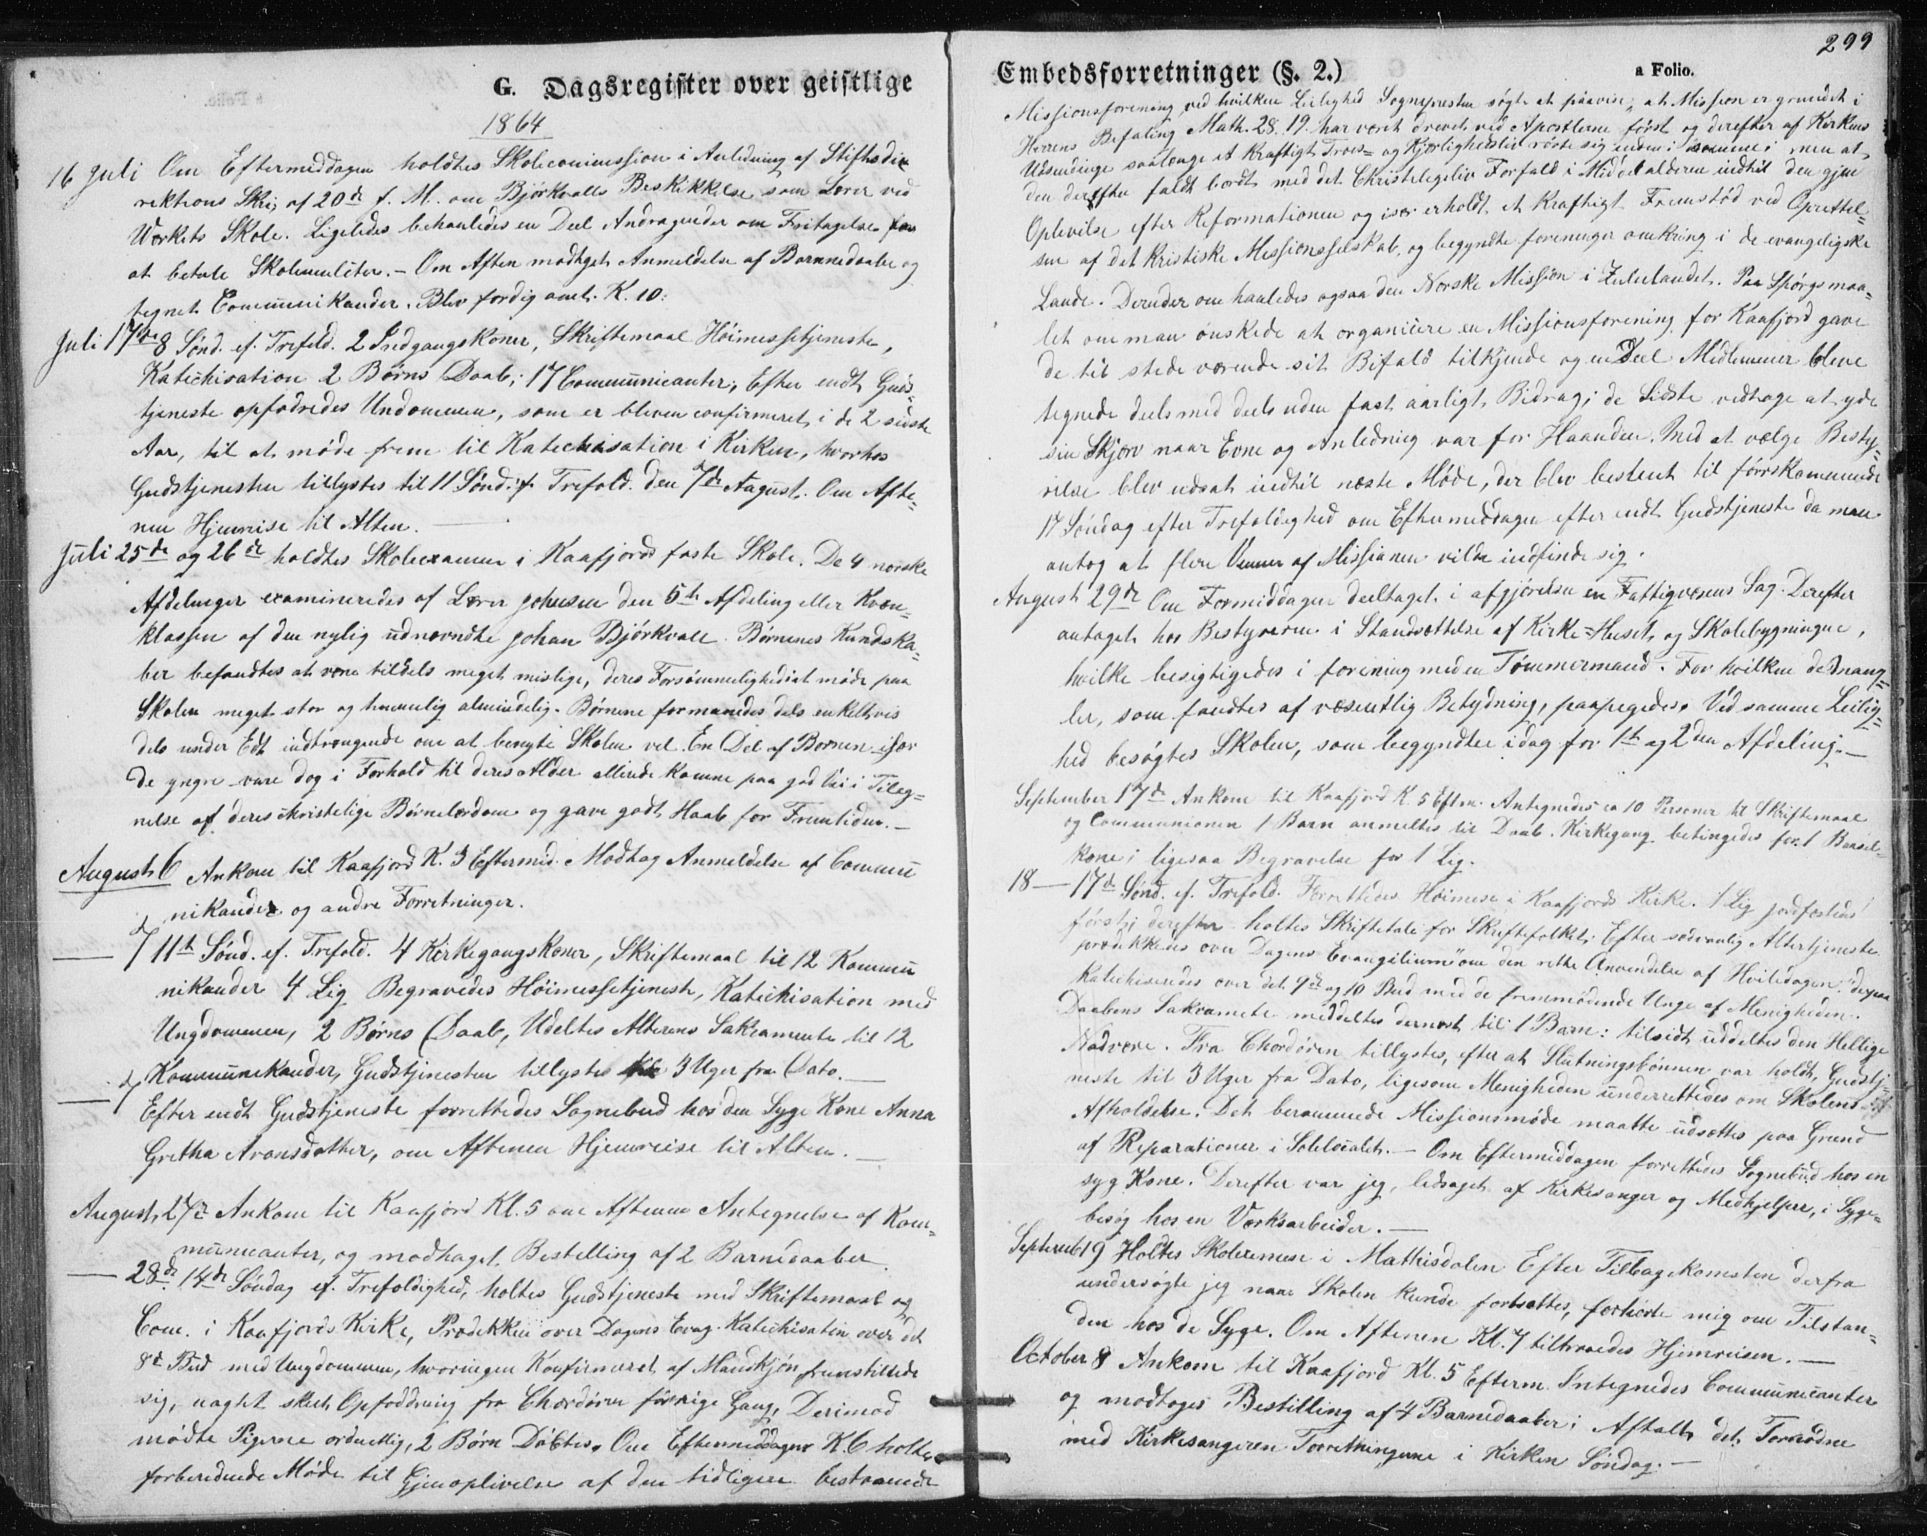 G. Dagsregister over geistlige
1864
16 Juli Om Eftermiddagen holdtes Skolecommission i Anledning af Stiftsdi
rektions Skri; af 20de f. M. om Björkvalls Beskikkelse som Lærer ved
Værkets Skole. Ligeledes behanledes en Deel Andragender om Fritagelse for
at betale Skolemulcter. - Om Aften modtaget Anmeldelse af Barnnedaabe og
tegnet Communikander. Blev fordig omt. K. 10.
Juli 17de 8 Sønd. ef. Trefold. 2 Indgangskoner, Skriftemaal Höimessetjeneste,
Katechisation 2 Børns Daab; 17 Communicanter, Efter endt Guds
tjeneste opfodredes Undommen, som er bleven confirmeret i de 2 sidste
Aar, til at møde frem til Katechisation i Kirken, hvorhos
Gudstjenesten tillystes til 11 Sønd. ef. Trefold. den 7de August. Om Afte-
nen Hjemreise til Alten.
Juli 25de og 26de holdtes Skoleexamen i Kaafjords faste Skole. De 4 norske
Afdelinger examineredes af Lærer Johnsen den 5te Afdeling eller Kvæn-
klassen af den nylig udnævndte Johan Björkvall. Børnenes Kundska-
ber befandtes at være tildels meget mislige, deres Forsømmelighed i at møde paa
Skolen meget stor og temmelig almindelig. Børnene formanedes dels enkeltvis
dels under Edt indtrængende om at benyte Skolen vel. En Del af Børnen især
de yngre vare dog i Forhold til deres Alder allerede komne paa god Vei i Tileg-
nelse af deres christelige Børnelærdom og gave godt Haab for Fremtiden. -
August 6 Ankom til Kaafjord K. 3 Eftermid. Modtog Anmeldelse af Commu
nikander og andre Forretninger.
— 7 11te Sønd. ef. Trefold. 4 Kirkegangskoner, Skriftemaal til 12 Kommu
nikander 4 Lig Begravedes Höimessetjeneste, Katechisation med
Ungdommen, 2 Børns Daab, Udeltes Alterens Sakramente til 12
Kommunikander, Gudstjenesten tillystes 3 Uger fra Dato.
— 7 Efter endt Gudstjeneste forrettedes Sognebud hos den Syge Kone Anna
Gretha Aronsdatter, om Aftenen Hjemreise til Alten.
August 27de Ankom til Kaafjord Kl. 5 om Aftenen Antegnelse af Kom-
municanter, og modtaget Bestilling af 2 Barnedaaber.
— 28de 14de Søndag ef. Trefoldighed, holtes Gudstjeneste med Skriftemaal og
Com. i Kaafjords Kirke, Prædikken over Dagens Evag. Katechisatin over det
8de Bud med Ungdommen, hvoringen Konfirmeret af Mandkjøn fremstillede
sig, uagtet skeet Opfoddring fra Chordøren forrige Gang, Derimod
mødte Pigerne ordentlig, 2 Børn Döbtes. Om Eftermiddagen K 6 holtes
forberedende Møde til Gjenoplivelse af den tidligere bestaaende
Embedsforretninger (§. 2.)
a Folio.
299
Missionsforening ved hvilken Leilighed Sognepresten søgte at paavise, at Mission er grundet i
Herrens Befaling Math. 28, 19. har været drevet ved Apostlerne først og derefter af Kirkens
Udsendinge saalænge et kraftigt Troes- og Kjærlighedsliv rörte sig inden i samme; men at
den derefter faldt bordt med det Christelegeliv Forfald i Middelalderen indtil den gjen
Oplivelse efter Reformationen og især erholdt et Kraftigt Fremstöd ved Oprettel-
sen af det Kristiske Missionsselskab, og begyndte foreninger omkring i de evangeligske
Lande. Derunder om hanledes ogsaa den Norske Mission i Zululandet. Paa Spörgsmaa-
let om man önskede at organisere en Missionsforening for Kaafjord gave
de til stede værende sit Bifald tilkjende og en Deel Midlemmer bleve
tegnede deels med deels uden fast aarligt Bidrag; de Sidste vedtage at yde
sin Skjerv naar Evne og Anledning var for Haanden. Med at vælge Besty-
relse blev udsat indtil næste Møde, der blev bestemt til förstkommende
17 Söndag efter Trefoldighed om Eftermeddagen efter endt Gudstjeneste da man
antog at flere Venner af Missionen vilde indfinde sig.
August 29de Om Formiddagen deeltaget i afgjörelse en Fattigvæsens Sag. Derefter
antaget hos Bestyreren i Standsættelse af Kirke=Huset, og Skolebygningne,
hvilke besigtigedes i forening med en Tömmermand. For hvilken de Mang-
ler, som fandtes af væsentlig Betydning, paapegedes. Ved samme Leilig-
hed besøgtes Skolen, som begyndtes idag for 1te og 2den Afdeling. -
September 17de Ankom til Kaafjord K. 5 Eftm. Antegnedes ca 10 Personer til Skriftemaal
og Communionen 1 Barn anmeltes til Daab. Kirkegang betingedes for 1 Barsel-
kone; ligesaa Begravelse for 1 Lig.
18 — 17de Sønd. ef. Trefold. Forrettedes Höimesse i Kaafjords Kirke. 1 Lig jordfæstedes
först; derefter holtes Skriftetale for Skriftefolket; Efter sødvanlig Altertjeneste
prædikkedes over Dagens Evangilium "om den rette Anvendelse af Hviledagen" depaa
Katechiseredes over det 9de og 10 Bud med de fremmödende Unge af Menigheden.
Daabens Sakramete meddeltes dernæst til 1 Barn: tilsidt uddeltes den Hellige
Nadvere. Fra Chordören tillystes, efter at Slutningsbönnen var holdt, Gudstj-
neste til 3 Uger fra Dato, ligesom Menigheden underrettedes om Skolens
Afholdelse. Det berammede Missionsmøde maatte udsættes paa Grund
af Reparationer i Skolelocalet. - Om Eftermiddagen forrettedes Sognebud hos en
syg Kone. Derefter var jeg, ledsaget af Kirkesanger og Medhjelper, i Syge-
besøg hos en Værksarbeider. -
Septemb 19 Holdtes Skoleexmese i Mathisdalen Efter Tilbagekomsten derfra
undersögte jeg naar Skolen kunde fortsættes, forhörte mig om Tilstan-
den hos de Syge. Om Aftenen Kl. 7 tiltraedes Hjemreisen. -
October 8 Ankom til Kaafjord Kl. 5 Efterm. Integnedes Communicanter
og modtoges Bestilling af 4 Barnedaaber; Aftalt det Fornödne
med Kirkesangeren Forretningerne i Kirken Söndag. -